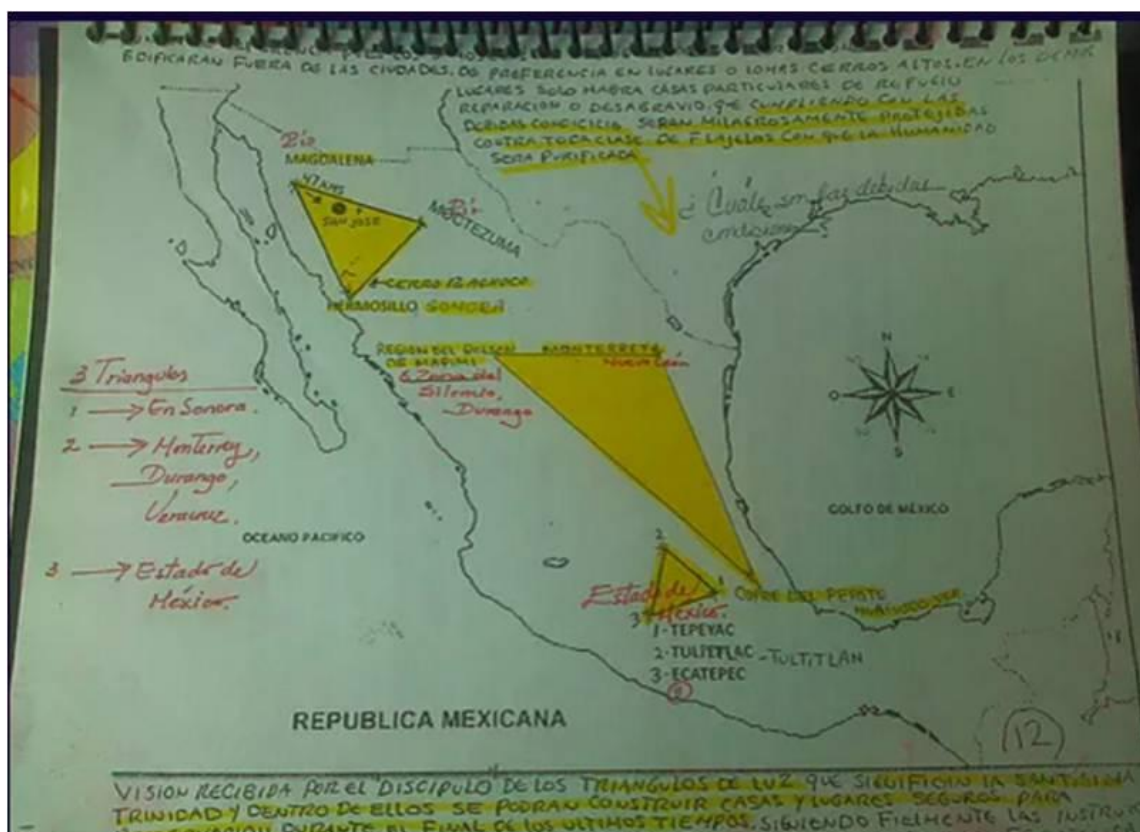 EDIFICARAN FUERA DE LAS CIUDADES. DE PREFERENCIA EN LUGARES O LOMAS CERROS ALTOS. EN LOS DEMAS
LUGARES SOLO HABRA CASAS PARTICULARES DE REFUGIO
REPARACION O DESAGRAVIO. QUE CUMPLIENDO CON LAS
DEBIDAS SERAN MILAGROSAMENTE PROTEJIDAS
CONTRA TODA CLASE DE FLAJELOS CON QUE LA HUMANIDAD
SERA PURIFICADA
¿Cuáles son las debidas
condiciones
Río
MAGDALENA
SAN JOSE
Río
MOCTEZUMA
CERRO
HERMOSILLO SONORA
REGION DEL MONTERREY
DE MAPIMI Nuevo León
ó Zona del
Silencio,
Durango
3 Triangulos
1 → En Sonora.
2 → Monterrey,
Durango,
Veracruz.
3 → Estado de
México.
N
O E
S
OCEANO PACIFICO
GOLFO DE MÉXICO
2
1
3
Estado de
México.
COFRE DEL
1-TEPEYAC
2-TULPETLAC -TULTITLAN
3-ECATEPEC
REPUBLICA MEXICANA
(12)
VISION RECIBIDA POR EL "DISCIPULO" DE LOS TRIANGULOS DE LUZ QUE SIGNIFICAN LA SANTISIMA
TRINIDAD Y DENTRO DE ELLOS SE PODRAN CONSTRUIR CASAS Y LUGARES SEGUROS PARA
DURANTE EL FINAL DE LOS ULTIMOS TIEMPOS. SIGUIENDO FIELMENTE LAS